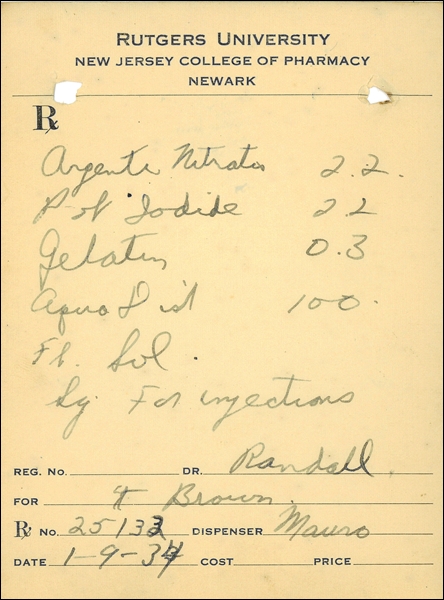 RUTGERS UNIVERSITY
NEW JERSEY COLLEGE OF PHARMACY
NEWARK
℞
Argente Nitratis 2.2.
Pot Iodide 2.2
Gelatin 0.3
Aqua Dist 100.
Ft. Sol.
Sg. For injections
REG. NO. DR. Randall
FOR Brown
℞ NO. 25132 DISPENSER Mauro
DATE 1-9-34 COST PRICE